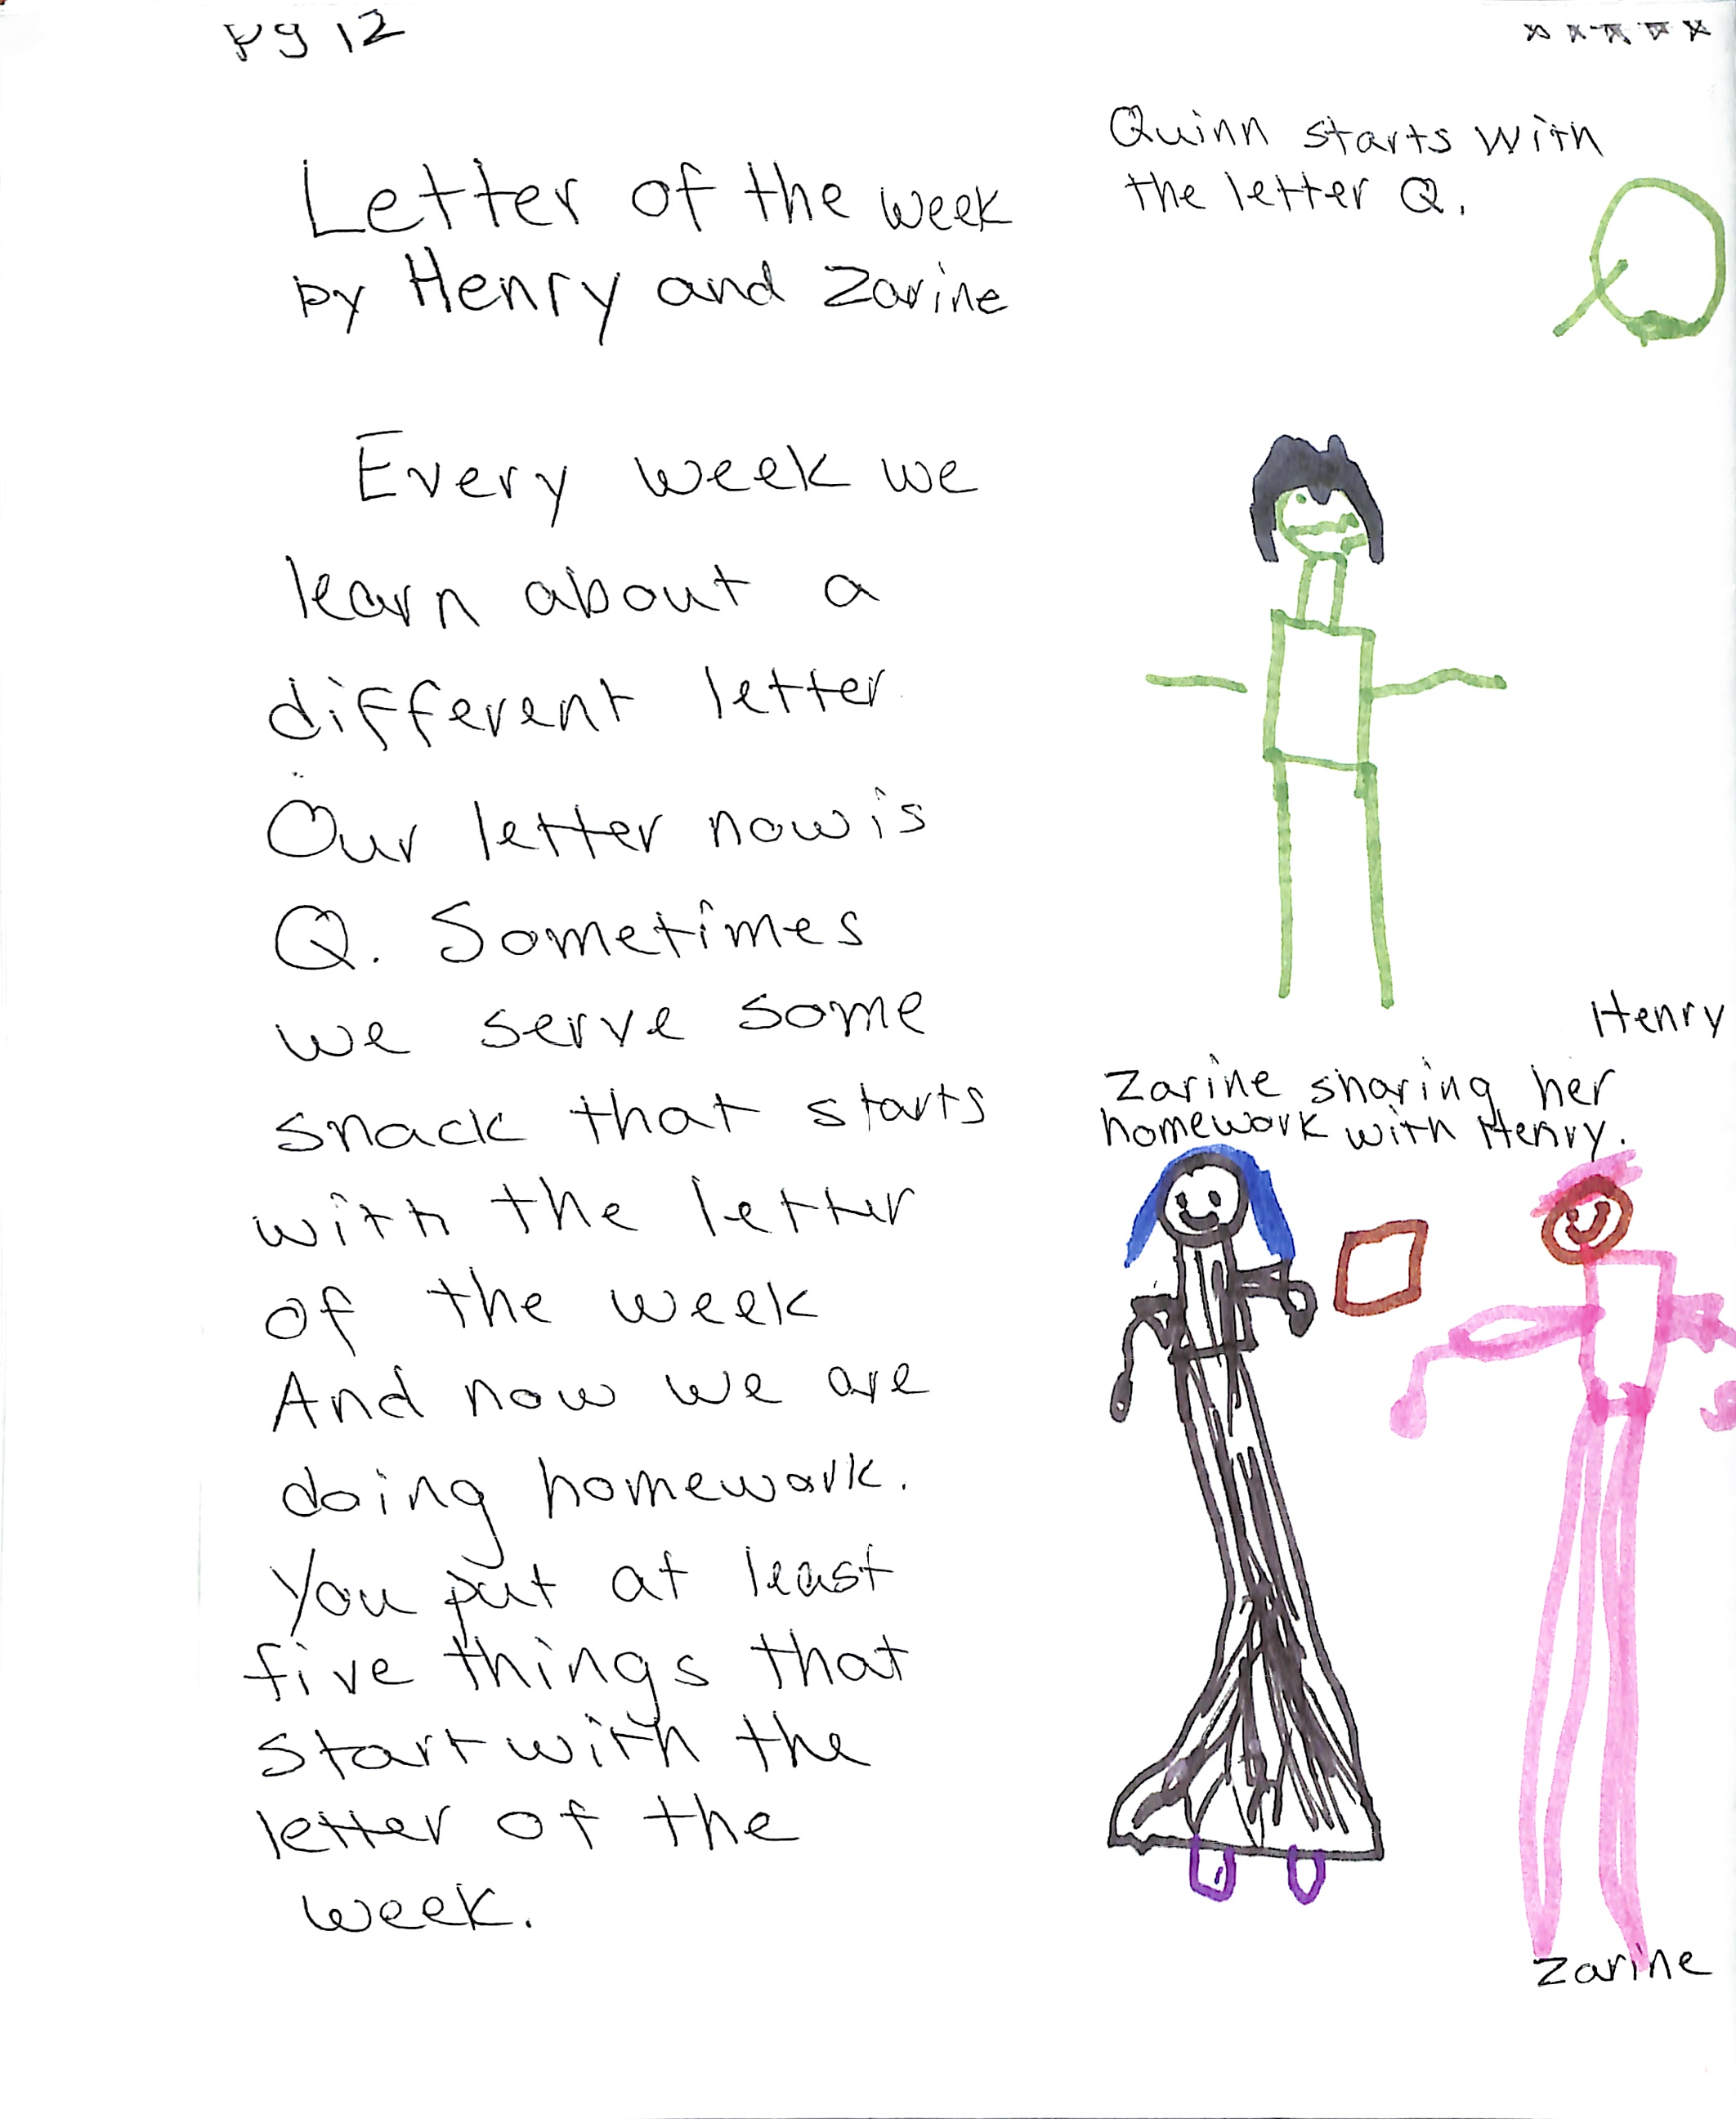 pg 12
Letter of the week
by Henry and Zarine
Every week we
learn about a
different letter
Our letter now is
Q. Sometimes
we serve some
snack that starts
with the letter
of the week
And now we are
doing homework.
You put at least
five things that
start with the
letter of the
week.
Quinn starts with
the letter Q.
Q
Henry
Zarine sharing her
homework with Henry.
Zarine